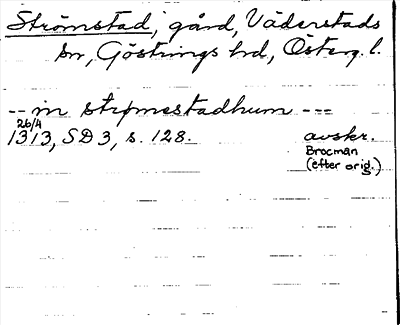 Strömstad, gård, Väderstads
sn, Göstrings hd, Österg. l.
-- in strømestadhum ---
26/4
1313, SD 3, s. 128. avskr.
Brocman
(efter orig.)